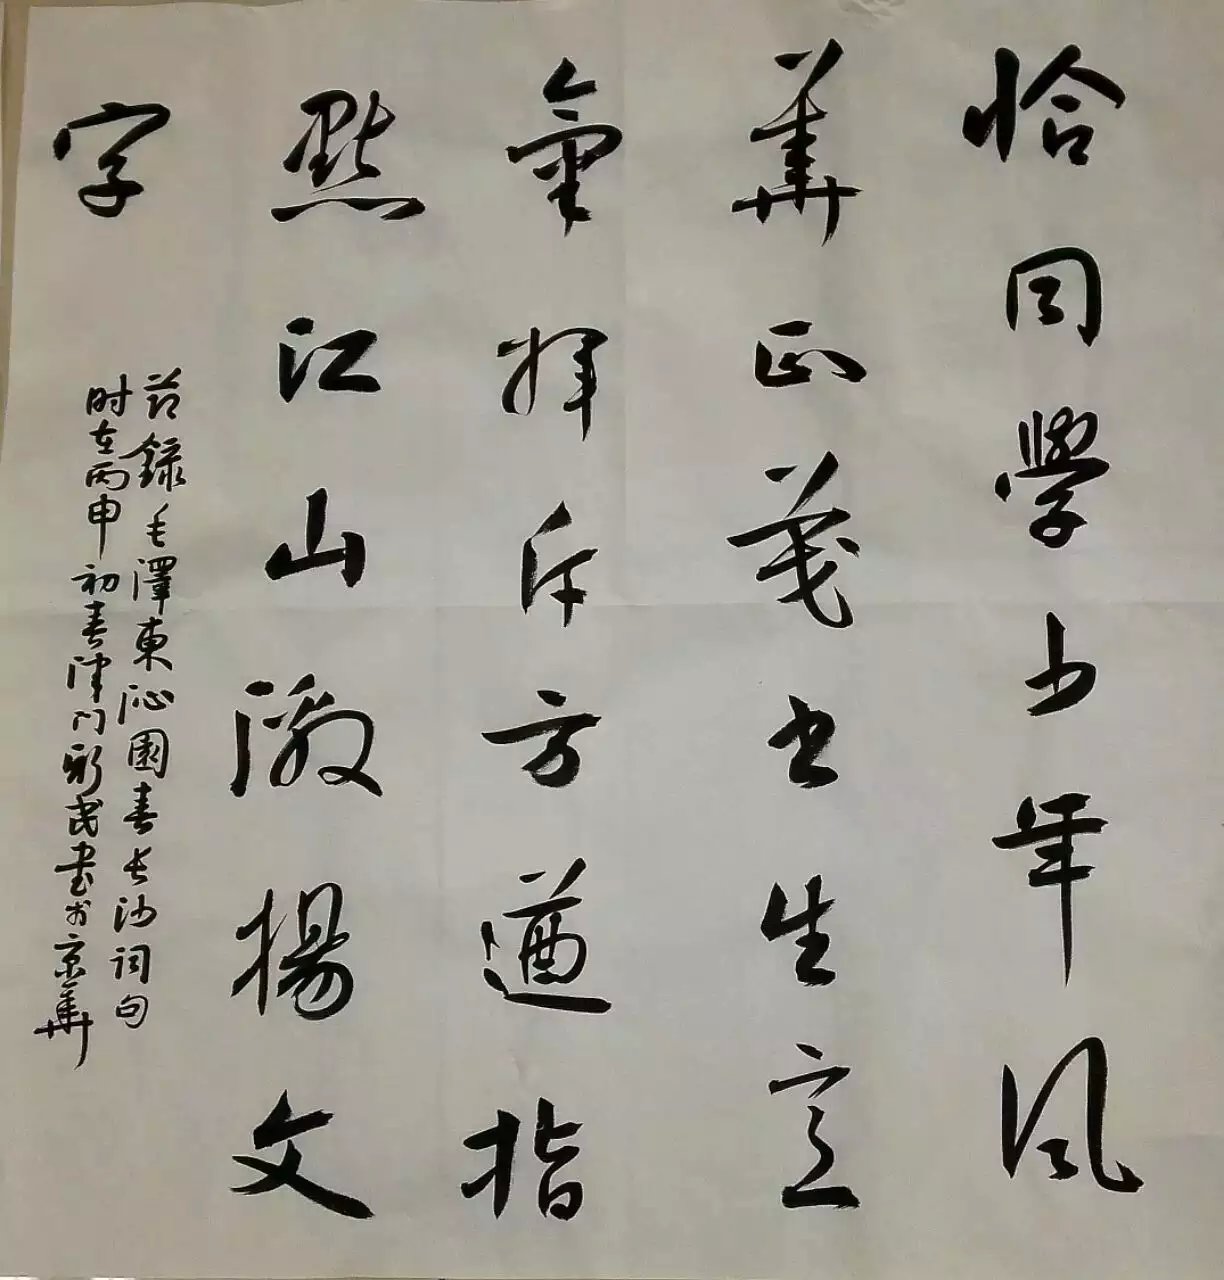 恰同學少年風
華正茂书生意
氣揮斥方遒指
點江山激揚文
字
节錄毛澤東沁園春长沙词句
时在丙申初春津门新民書于京華